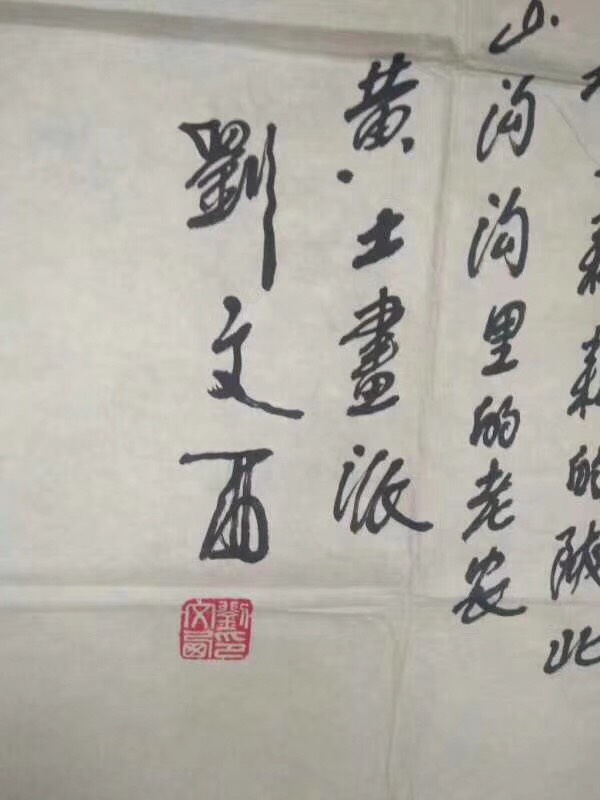 的陕北
山沟沟里的老农
黄土畫派
劉文西
劉印
文西